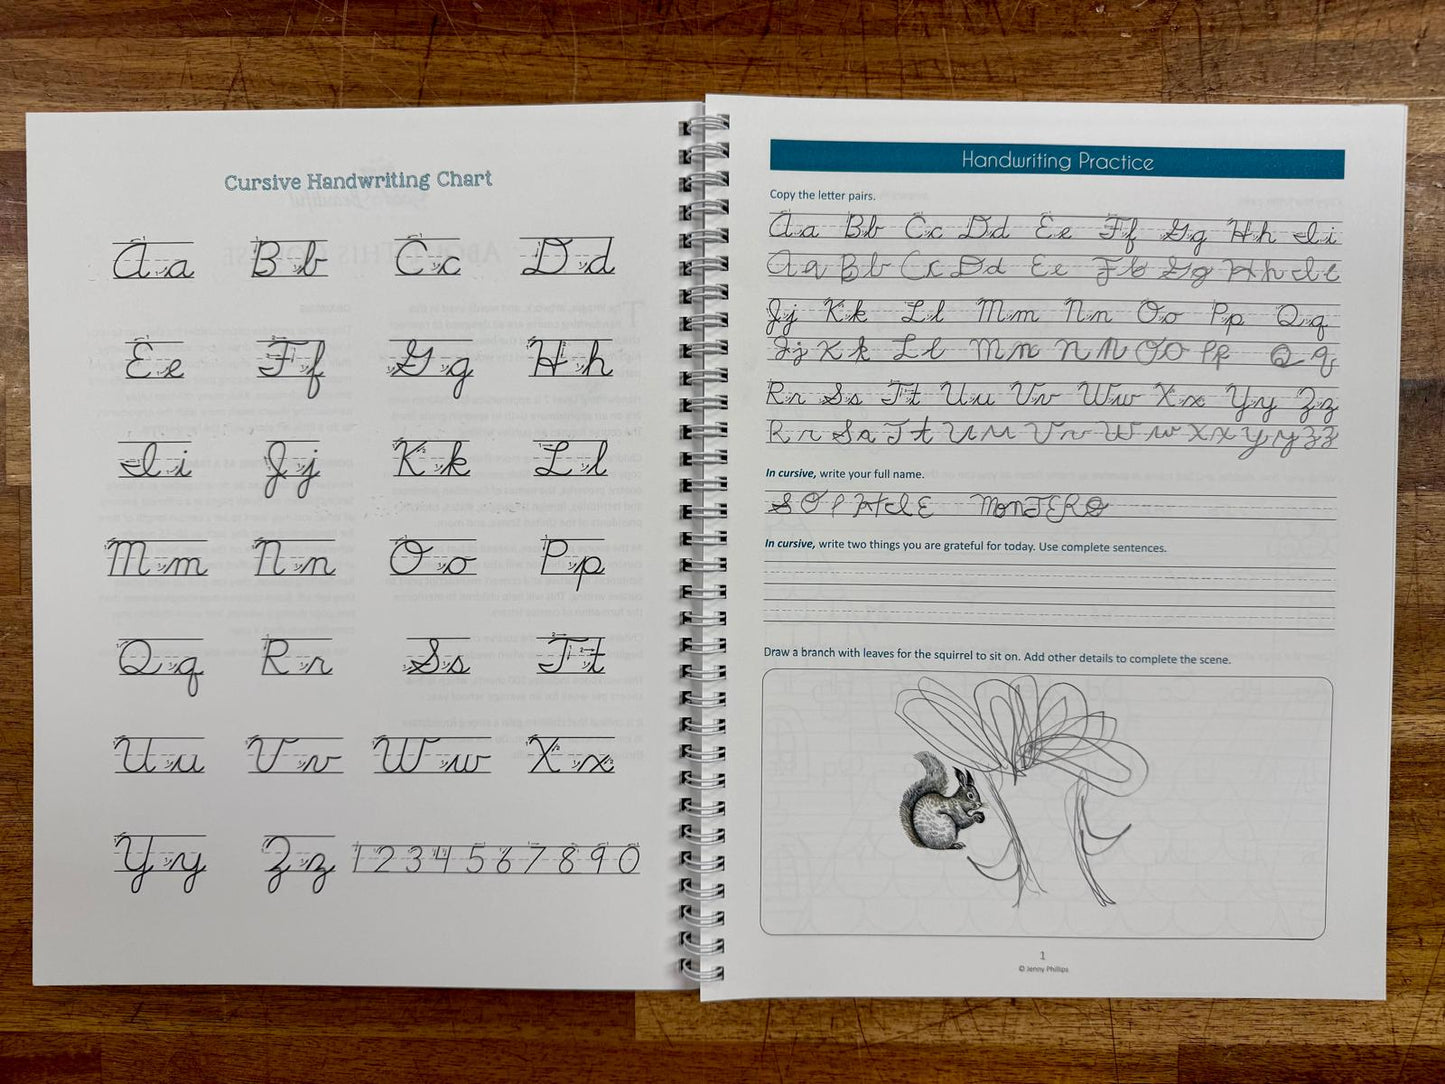 Cursive Handwriting Chart
Aa Bb Cc Dd
Ee Ff Gg Hh
Ii Jj Kk Ll
Mm Nn Oo Pp
Qq Rr Ss Tt
Uu Vv Ww Xx
Yy Zz 1234567890
Handwriting Practice
Copy the letter pairs.
Aa Bb Cc Dd Ee Ff Gg Hh Ii
Aa Bb Cc Dd Ee Ff Gg Hh Ii
Jj Kk Ll Mm Nn Oo Pp Qq
Jj Kk Ll Mm Nn Oo Pp Qq
Rr Ss Tt Uu Vv Ww Xx Yy Zz
Rr Ss Tt Uu Vv Ww Xx Yy Zz
In cursive, write your full name.
SOPHIE MonTERO
In cursive, write two things you are grateful for today. Use complete sentences.
Draw a branch with leaves for the squirrel to sit on. Add other details to complete the scene.
1
© Jenny Phillips